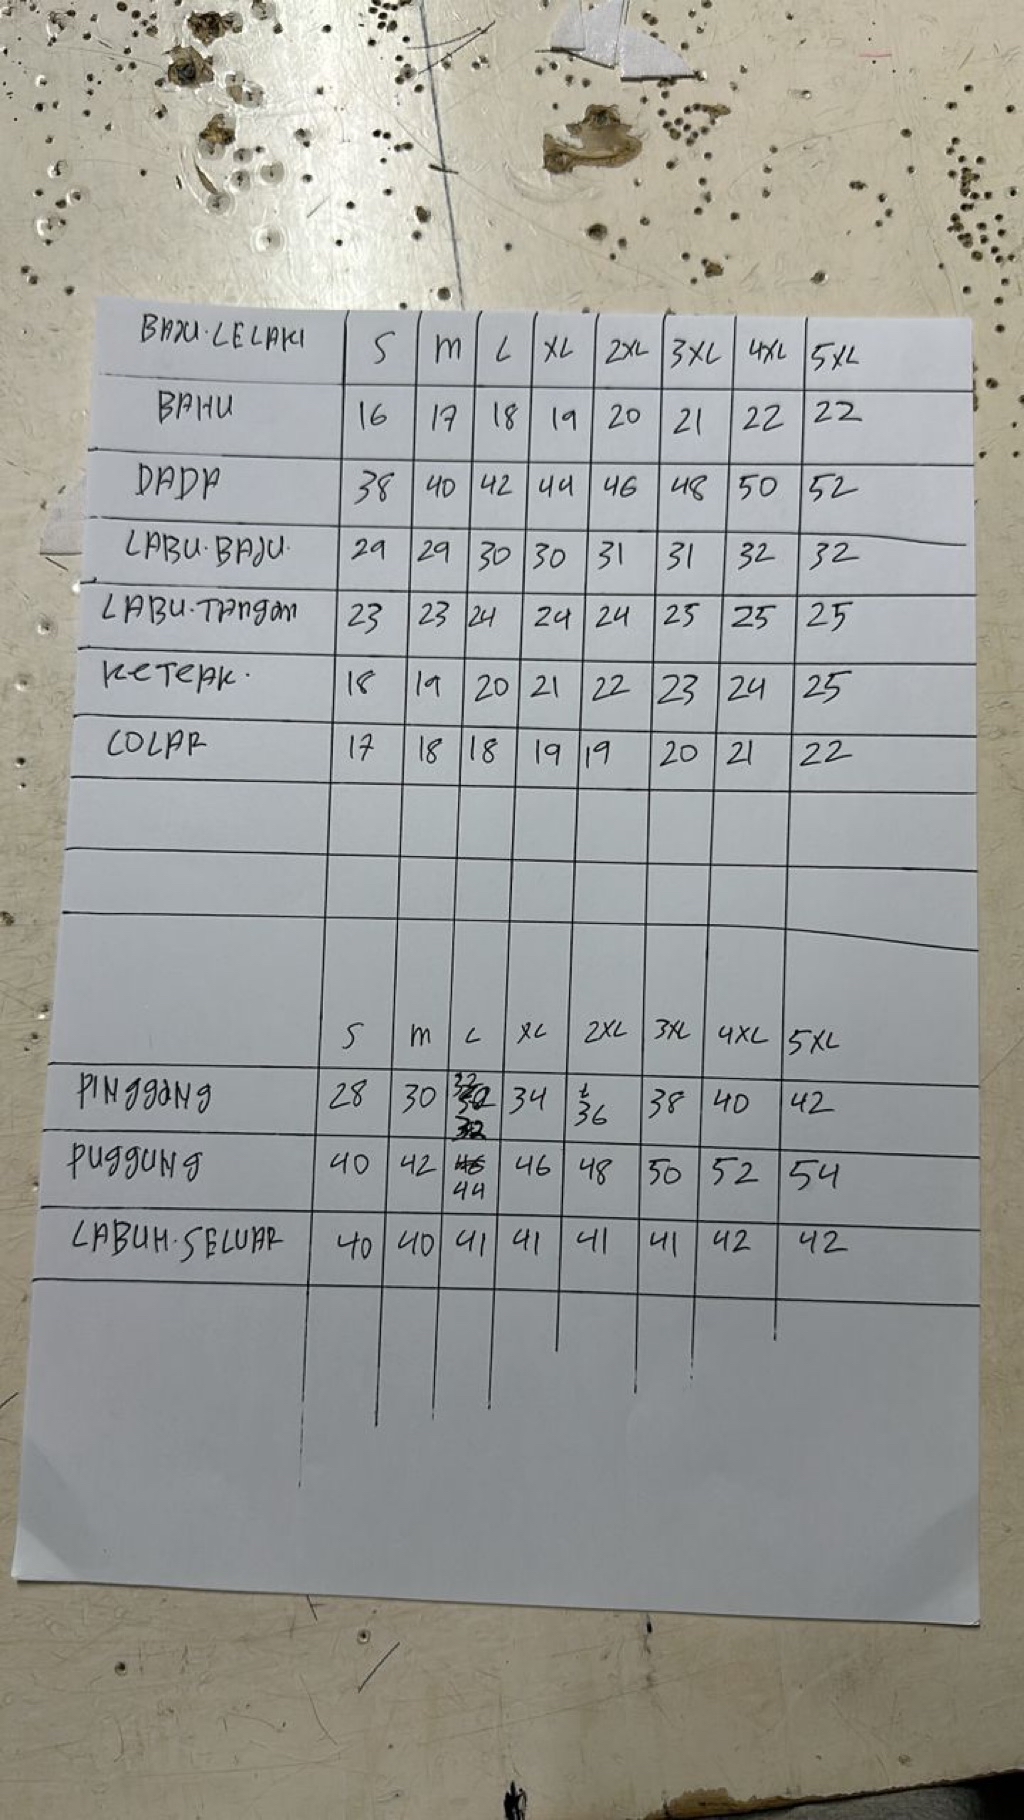 BAJU.LELAKI S M L XL 2XL 3XL 4XL 5XL
BAHU 16 17 18 19 20 21 22 22
DADA 38 40 42 44 46 48 50 52
LABU.BAJU. 29 29 30 30 31 31 32 32
LABU.TANgan 23 23 24 24 24 25 25 25
KETEAK. 18 19 20 21 22 23 24 25
COLAR 17 18 18 19 19 20 21 22
S M L XL 2XL 3XL 4XL 5XL
PINggang 28 30 32 34 36 38 40 42
PUggUNg 40 42 44 46 48 50 52 54
LABUH.SELUAR 40 40 41 41 41 41 42 42